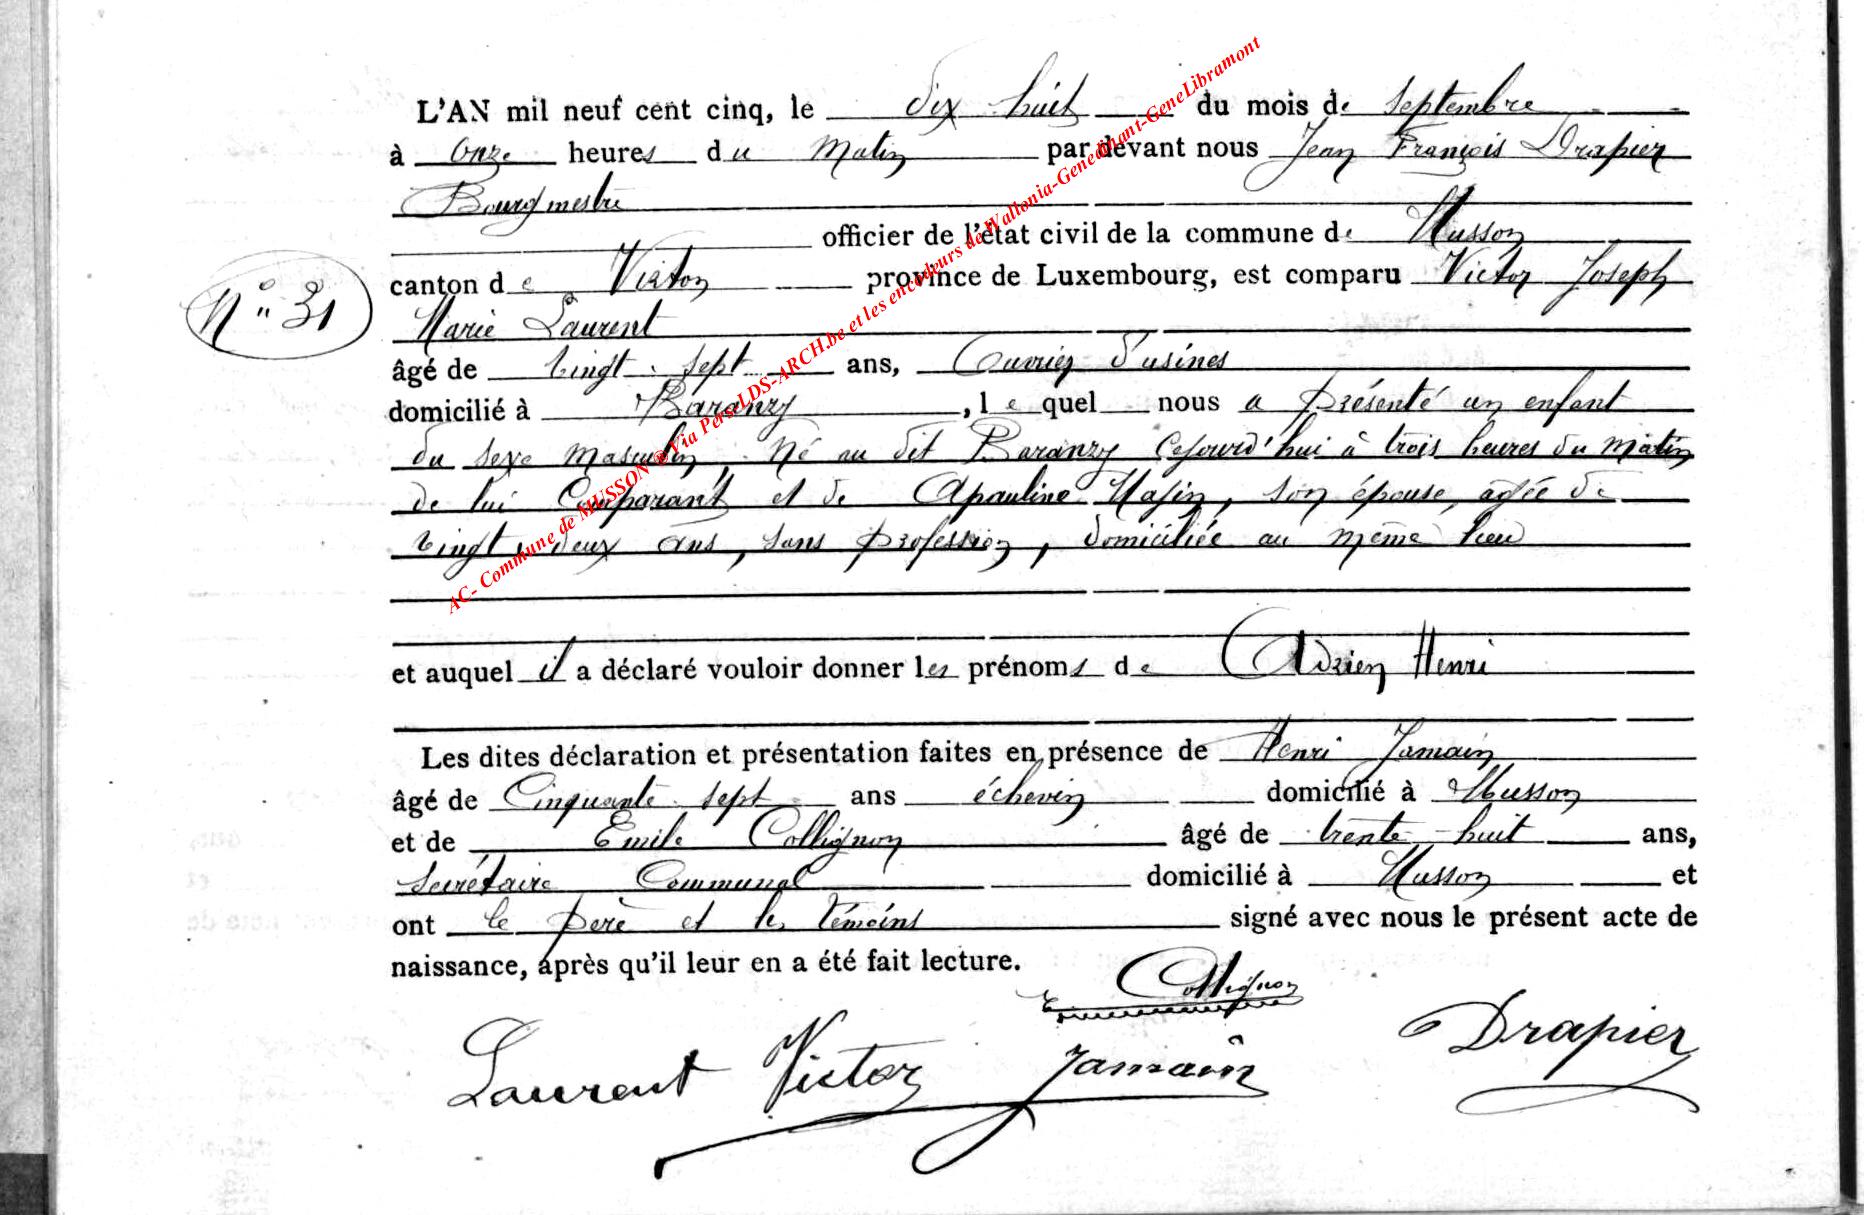 L'AN mil neuf cent cinq, le dix huit du mois de Septembre
à onze heures du Matin par devant nous Jean François Drapier
Bourgmestre
officier de l'état civil de la commune de Musson
canton de Virton province de Luxembourg, est comparu Victor Joseph
N° 31
Marie Laurent
âgé de vingt sept ans, Ouvrier d'usines
domicilié à Baranzy, lequel nous a présenté un enfant
du sexe masculin, né au dit Baranzy Cejourd'hui à trois heures du matin
de lui Comparant et de Apauline, son épouse, agée de
vingt deux ans, sans profession, domiciliée au même lieu
et auquel il a déclaré vouloir donner les prénoms de Adrien Henri
Les dites déclaration et présentation faites en présence de Henri Jamain
âgé de Cinquante sept ans échevin domicilié à Musson
et de Emile Collignon âgé de trente huit ans,
Secrétaire Communal domicilié à Musson et
ont le père et les témoins signé avec nous le présent acte de
naissance, après qu'il leur en a été fait lecture.
E. Collignon
Laurent Victor Jamain Drapier
AC- Commune de MUSSON @ Via Pers-LDS-ARCH.be et les encodeurs de Wallonia-Genedinant-GeneLibramont